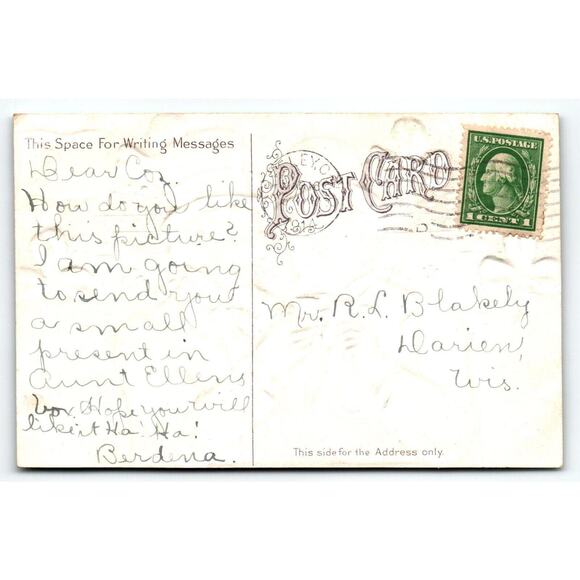 This Space For Writing Messages
Dear Coz.
How do you like
this picture?
I am going
to send you
a small
present in
Aunt Ellens
box. Hope you will
like it Ha! Ha!
Berdena.
POST CARD
U.S. POSTAGE
1 CENT 1
Mr. R. L. Blakely
Darien,
Wis.
This side for the Address only.